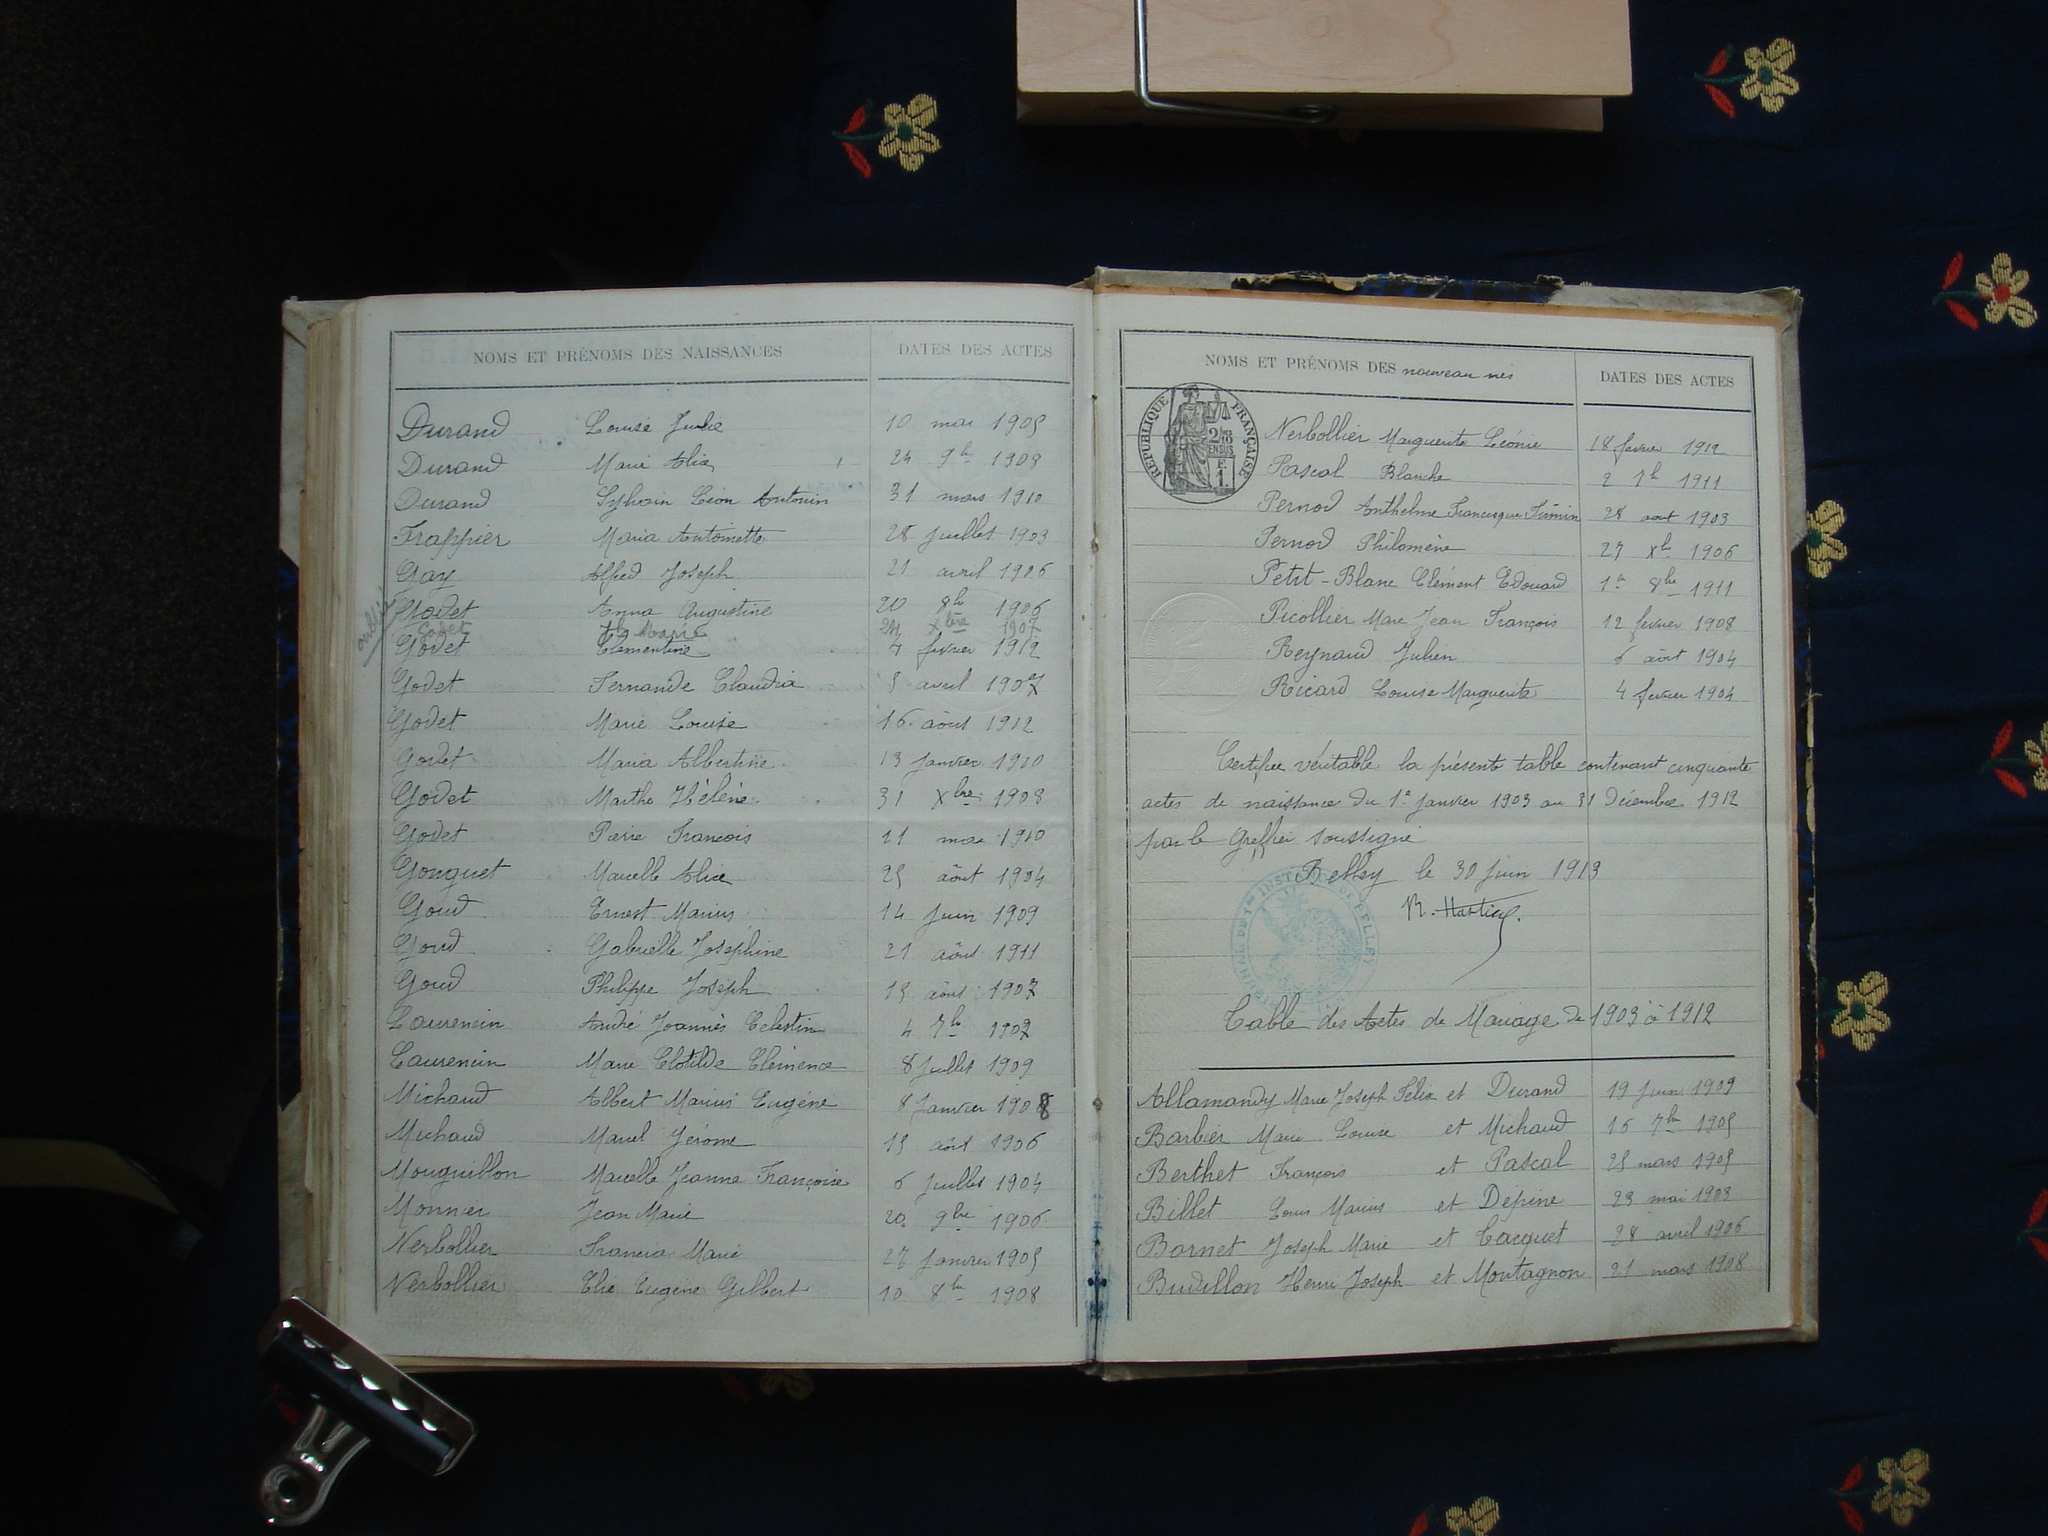 NOMS ET PRÉNOMS DES NAISSANCES DATES DES ACTES
Durand Louise Julie 10 mai 1905
Durand Marie Alix 24 9b 1909
Durand Sylvain Léon Antonin 31 mars 1910
Frappier Maria Antoinette 28 juillet 1903
Gay Alfred Joseph 21 avril 1906
Godet Anna Augustine 20 8b 1906
oublié Godet Marie 24 Xbre 1907
Godet Clémentine 7 février 1912
Godet Fernande Claudia 5 avril 1907
Godet Marie Louise 16 août 1912
Godet Maria Albertine 13 janvier 1910
Godet Marthe Hélène 31 Xbre 1908
Godet Pierre François 21 mai 1910
Gonguet Marcelle Alice 25 août 1904
Goud Ernest Marius 14 juin 1909
Goud Gabrielle Joséphine 21 août 1911
Goud Philippe Joseph 15 août 1907
Laurencin André Joannès Celestin 4 7b 1907
Laurencin Marie Clotilde Clémence 8 juillet 1909
Michaud Albert Marius Eugène 8 janvier 1908
Michaud Marcel Jérome 15 août 1906
Mouguillon Marcelle Jeanne Françoise 6 juillet 1904
Monnier Jean Marie 20 9bre 1906
Nerbollier Francia Marie 27 janvier 1905
Nerbollier Elie Eugène Gilbert 10 8b 1908
NOMS ET PRÉNOMS DES nouveau nés DATES DES ACTES
RÉPUBLIQUE FRANÇAISE
2/10 EN SUS
F. 1.
Nerbollier Marguerite Léonie 18 février 1912
Pascal Blanche 2 7b 1911
Pernod Anthelme Francisque Firmin 28 août 1903
Pernod Philomène 27 Xb 1906
Petit-Blanc Clément Edouard 1er 8bre 1911
Picollier Marc Jean François 12 février 1908
Reynaud Julien 6 août 1904
Ricard Louise Marguerite 4 février 1904
Certifiée véritable la présente table contenant cinquante
actes de naissance du 1er janvier 1903 au 31 Décembre 1912
par le Greffier soussigné
Belley le 30 juin 1913
TRIBUNAL DE 1ère INSTANCE DE BELLEY
Table des Actes de Mariage de 1903 à 1912
Allamandy Marie Joseph Félix et Durand 19 juin 1909
Barbier Marie Louise et Michaud 16 7bre 1905
Berthet François et Pascal 25 mars 1905
Billet Louis Marius et Dépine 23 mai 1903
Bornet Joseph Marie et Cacquet 28 avril 1906
Budillon Henri Joseph et Montagnon 21 mars 1908